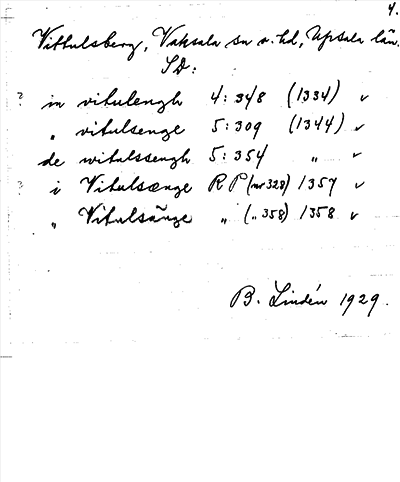 4.
Vittulsberg, Vaksala sn o. hd, Upsala län.
SD:
? in vitulengh 4: 348 (1334) ✓
„ vitulsenge 5: 309 (1344) ✓
de witulssengh 5: 354 „ ✓
? i Vitulsænge RP (nr 328) 1357 ✓
„ Vitulsänge „ („ 358) 1358 ✓
B. Lindén 1929.